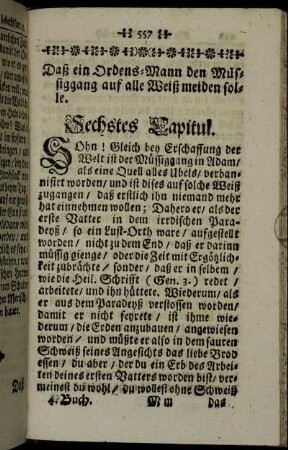 557
Daß ein Ordens-Mann den Müs-
siggang auf alle Weiß meiden sol-
le.
Sechstes Capitul.
Sohn! Gleich bey Erschaffung der
Welt ist der Müssiggang in Adam/
als eine Quell alles Ubels/ verban-
nisirt worden/ und ist dises auf solche Weiß
zugangen/ daß erstlich ihn niemand mehr
hat einnehmen wollen; Dahero er/ als der
erste Vatter in dem Irdischen Para-
deyß/ so ein Lust-Orth ware/ aufgestellt
worden/ nicht zu dem End/ daß er darinn
müssig gienge/ oder die Zeit mit Ergötzlich-
keit zubrächte/ sonder/ daß er in selbem/
wie die Heil. Schrifft (Gen. 3.) redet/
arbeitete/ und ihn hüttete. Wiederum/ als
er aus dem Paradeyß verstossen worden/
damit er nicht feyrete/ ist ihme wie-
derum/ die Erden anzubauen/ angewiesen
worden/ und müßte er also in dem sauren
Schweiß seines Angesichts das liebe Brod
essen/ du aber/ der du ein Erb des Arbei-
ten deines ersten Vatters worden bist/ ver-
meinest du wohl/ du wollest ohne Schweiß
4. Buch. M m das